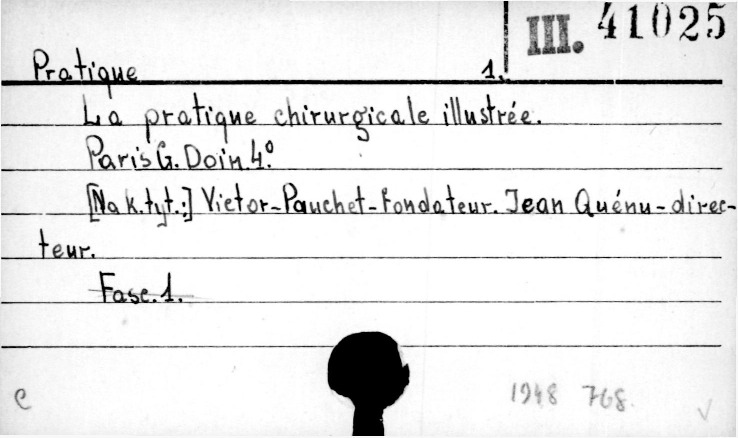 III. 41025
Pratique 1.
La pratique chirurgicale illustrée.
Paris G. Doin. 4º
[Na k. tyt.:] Victor-Pauchet-Fondateur. Jean Quénu-direc-
teur.
Fasc. 1.
e 1948 768.